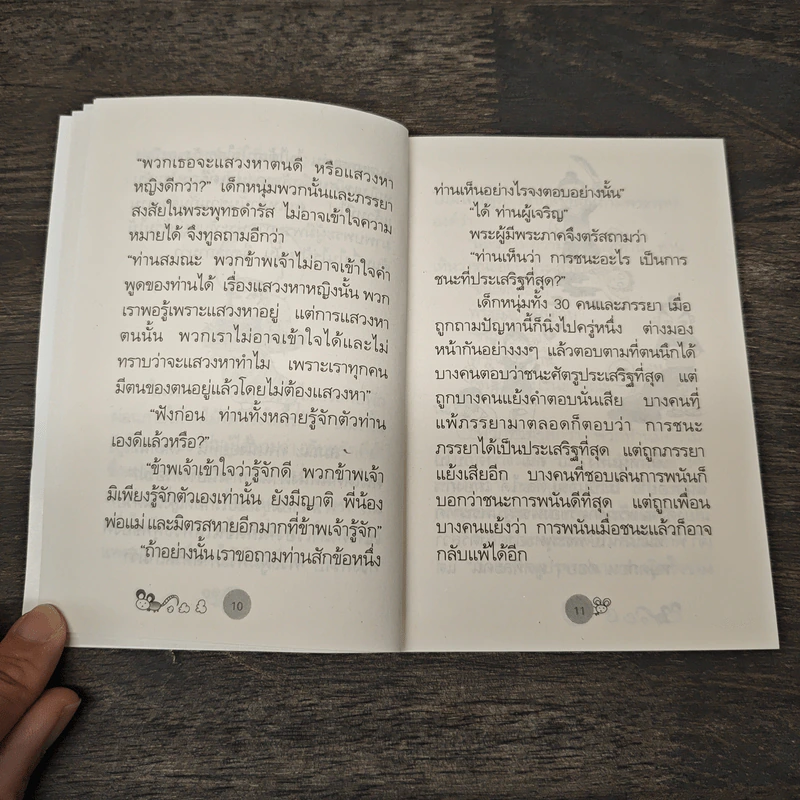 "พวกเธอจะแสวงหาตนดี หรือแสวงหา
หญิงดีกว่า?" เด็กหนุ่มพวกนั้นและภรรยา
สงสัยในพระพุทธดำรัส ไม่อาจเข้าใจความ
หมายได้ จึงทูลถามอีกว่า
"ท่านสมณะ พวกข้าพเจ้าไม่อาจเข้าใจคำ
พูดของท่านได้ เรื่องแสวงหาหญิงนั้น พวก
เราพอรู้เพราะแสวงหาอยู่ แต่การแสวงหา
ตนนั้น พวกเราไม่อาจเข้าใจได้และไม่
ทราบว่าจะแสวงหาทำไม เพราะเราทุกคน
มีตนของตนอยู่แล้วโดยไม่ต้องแสวงหา"
"ฟังก่อน ท่านทั้งหลายรู้จักตัวท่าน
เองดีแล้วหรือ?"
"ข้าพเจ้าเข้าใจว่ารู้จักดี พวกข้าพเจ้า
มิเพียงรู้จักตัวเองเท่านั้น ยังมีญาติ พี่น้อง
พ่อแม่ และมิตรสหายอีกมากที่ข้าพเจ้ารู้จัก"
"ถ้าอย่างนั้น เราขอถามท่านสักข้อหนึ่ง
10
ท่านเห็นอย่างไรจงตอบอย่างนั้น"
"ได้ ท่านผู้เจริญ"
พระผู้มีพระภาคจึงตรัสถามว่า
"ท่านเห็นว่า การชนะอะไร เป็นการ
ชนะที่ประเสริฐที่สุด?"
เด็กหนุ่มทั้ง 30 คนและภรรยา เมื่อ
ถูกถามปัญหานี้ก็นิ่งไปครู่หนึ่ง ต่างมอง
หน้ากันอย่างงงๆ แล้วตอบตามที่ตนนึกได้
บางคนตอบว่าชนะศัตรูประเสริฐที่สุด แต่
ถูกบางคนแย้งคำตอบนั่นเสีย บางคนที่
แพ้ภรรยามาตลอดก็ตอบว่า การชนะ
ภรรยาได้เป็นประเสริฐที่สุด แต่ถูกภรรยา
แย้งเสียอีก บางคนที่ชอบเล่นการพนันก็
บอกว่าชนะการพนันดีที่สุด แต่ถูกเพื่อน
บางคนแย้งว่า การพนันเมื่อชนะแล้วก็อาจ
กลับแพ้ได้อีก
11